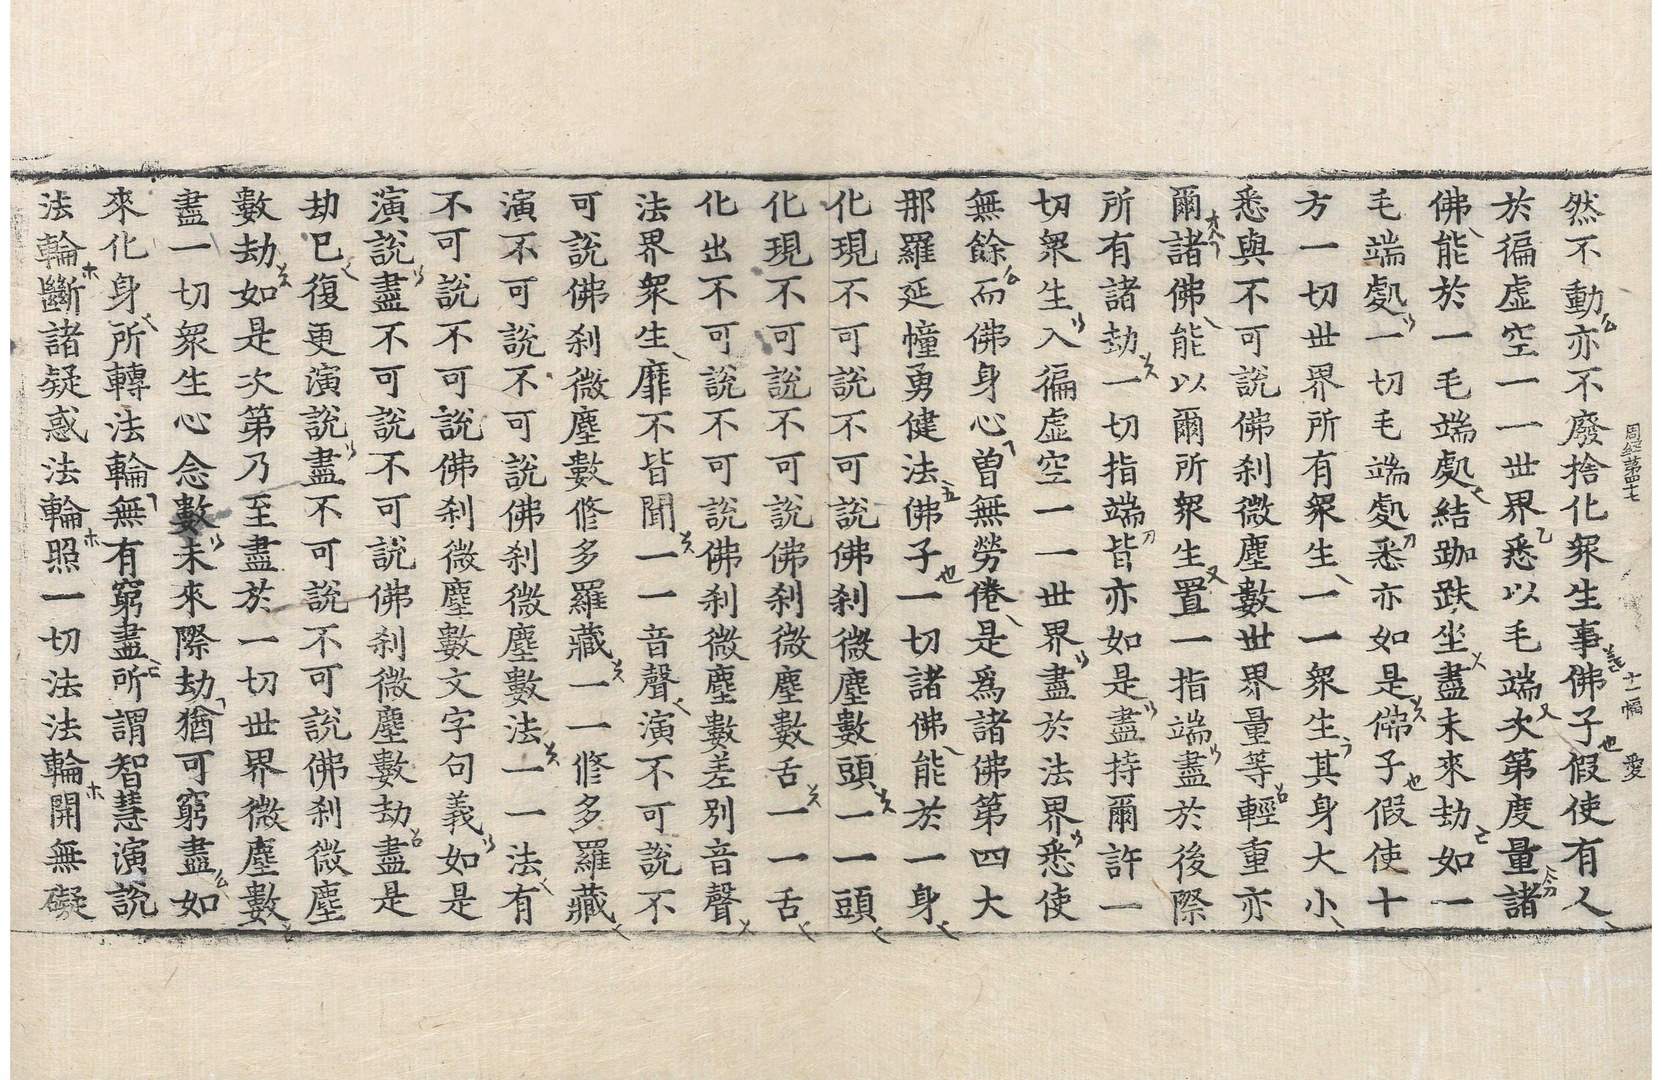 周經第四七 十一幅 愛
然不動亦不廢捨化衆生事佛子假使有人
於徧虛空一一世界悉以毛端次第度量諸
佛能於一毛端處結跏趺坐盡未來劫如一
毛端處一切毛端處悉亦如是佛子假使十
方一切世界所有衆生一一衆生其身大小
悉與不可說佛刹微塵數世界量等輕重亦
爾諸佛能以爾所衆生置一指端盡於後際
所有諸劫一切指端皆亦如是盡持爾許一
切衆生入徧虛空一一世界盡於法界悉使
無餘而佛身心曽無勞倦是爲諸佛第四大
那羅延幢勇健法佛子一切諸佛能於一身
化現不可說不可說佛刹微塵數頭一一頭
化現不可說不可說佛刹微塵數舌一一舌
化出不可說不可說佛刹微塵數差別音聲
法界衆生靡不皆聞一一音聲演不可說不
可說佛刹微塵數修多羅藏一一修多羅藏
演不可說不可說佛刹微塵數法一一法有
不可說不可說佛刹微塵數文字句義如是
演說盡不可說不可說佛刹微塵數劫盡是
劫已復更演說盡不可說不可說佛刹微塵
數劫如是次第乃至盡於一切世界微塵數
盡一切衆生心念數未來際劫猶可窮盡如
來化身所轉法輪無有窮盡所謂智慧演說
法輪斷諸疑惑法輪照一切法法輪開無礙